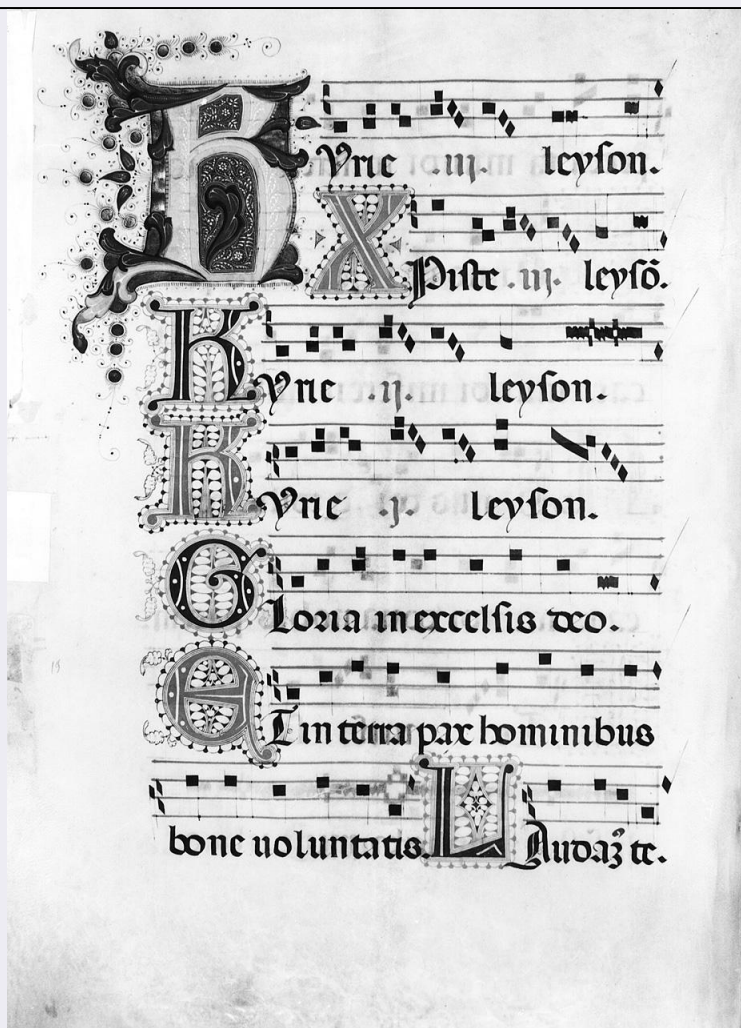 Kyrie .iij. leyson.
Xpiste .iij. leysō.
Kyrie .ij. leyson.
Kyrie .j. leyson.
Gloria in excelsis deo.
Et in terra pax hominibus
bone uoluntatis. Laudaꝫ te.